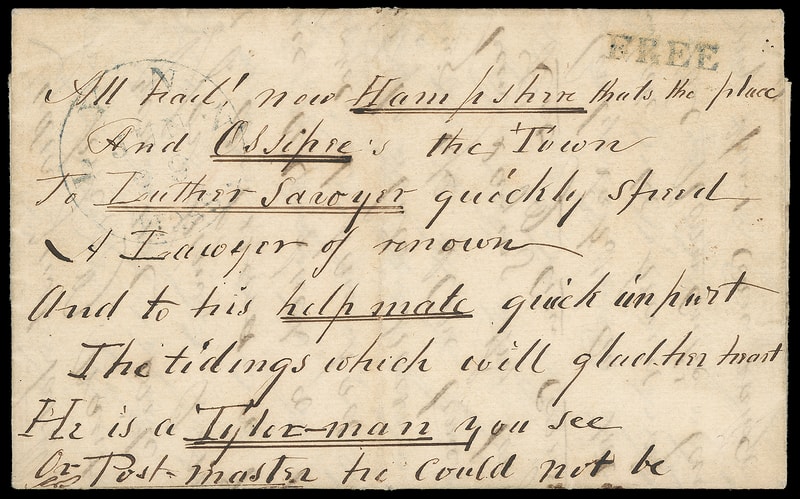 FREE
All hail! now Hampshire thats the place
And Ossipee's the Town
To Luther Sawyer quickly speed
A Lawyer of renown
And to his help mate quick impart
The tidings which will glad her heart
He is a Tyler-man you see
Or Post-master he could not be